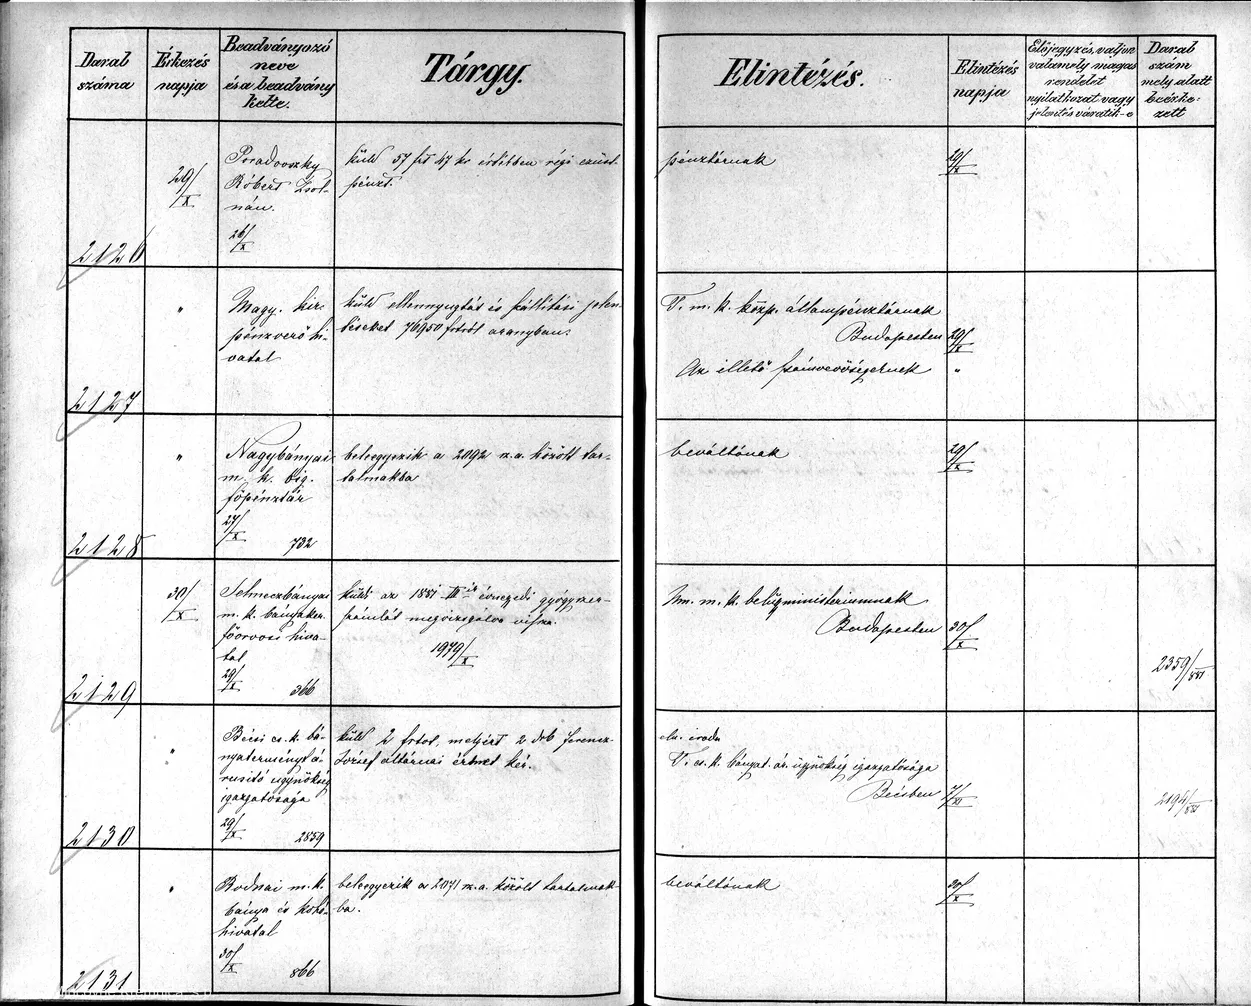 Darab
száma
Érkezés
napja
Beadványozó
neve
és a beadvány
kelte.
Tárgy.
Elintézés.
Elintézés
napja
Előjegyzés, valjon
valamely magas
rendelet
nyilatkozat vagy
jelentés váratik-e
Darab
szám
mely alatt
beérke-
zett
2126
29/X
Poradovszky
Róbert Zsol-
nán.
26/X
küld 57 frt 47 kr értékben régi ezüst
pénzt.
pénztárnak
29/X
2127
"
Magy. kir.
pénzverő hi-
vatal
küld ellennyugtát és szállítási jelen-
téseket 76950 frtról aranyban.
T. m. k. közp. állampénztárnak
Budapesten 29/X
Az illető "
2128
"
Nagybányai
m. k. big.
főpénztár
27/X 732
beleegyezik a 2092 sz. a. között tar-
talmakba
beváltónak
29/X
2129
30/X
Selmeczbányai
m. k. bányaker.
főorvosi hiva-
tal
29/X 366
küldi az 1881 III ik évnegyedi gyógyszer-
számlát megvizsgálva vissza.
1979/X
Nm. m. k. belügyministeriumnak
Budapesten 30/X
2359/881
2130
"
Bécsi cs. k. bá-
nyatermény á-
rusító ügynökség
igazgatósága
29/X 2859
küld 2 frtot, melyért 2 drb ferencz
József altárnai érmet kér.
eln. iroda
T. cs. k. bányat. ár. ügynökség igazgatósága
Bécsben 7/XI
2194/881
2131
"
Rodnai m. k.
bánya és kohó-
hivatal
30/X 866
beleegyezik a 2071 sz. a. között tartalmak-
ba.
beváltónak
30/X